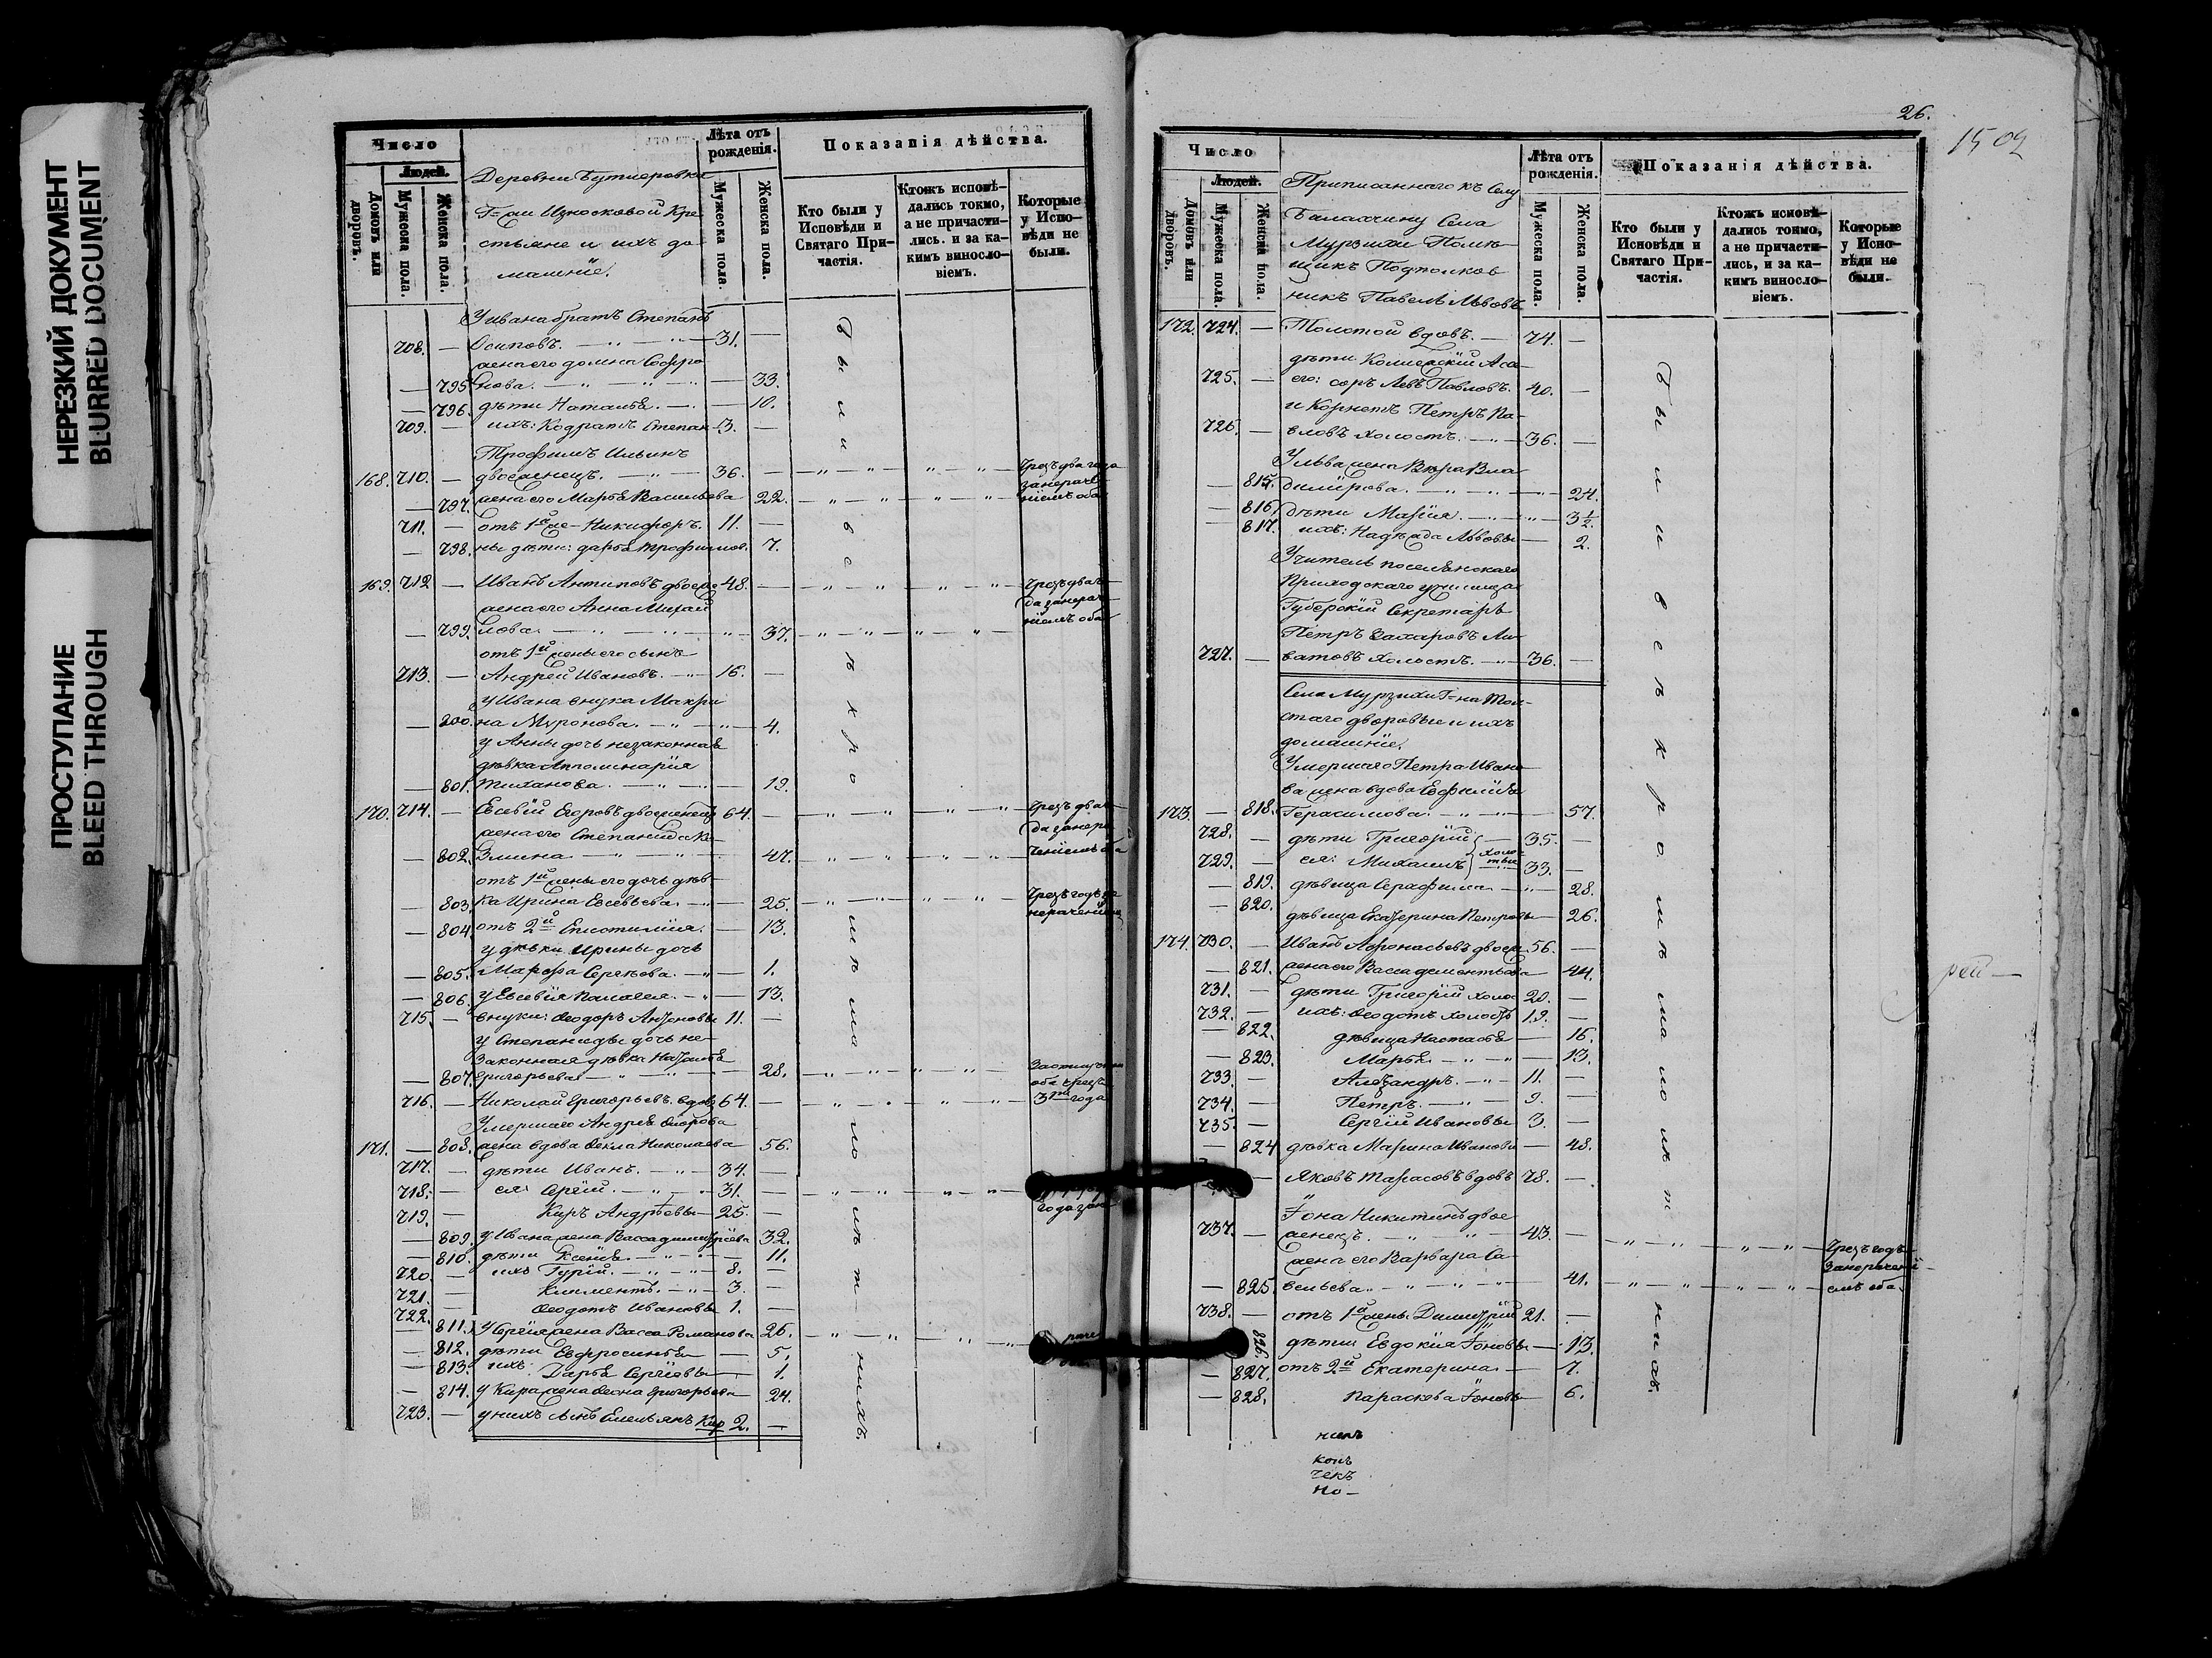 НЕРЕЗКИЙ ДОКУМЕНТ
BLURRED DOCUMENT
ПРОСТУПАНИЕ
BLEED THROUGH
Число
Людей.
Домовъ или дворовъ.
Мужеска пола.
Женска пола.
Деревни Бутлеровки
Г=жи Износковой Кре
стьяне и ихъ до
машніе.
Лѣта отъ рожденія.
Мужеска пола.
Женска пола.
Показанія дѣйства.
Кто были у Исповѣди и Святаго Причастія.
Ктожъ исповѣдались токмо, а не причастились. и за какимъ винословіемъ.
Которые у Исповѣди не были.
У ивана братъ Степанъ
708. — Осиповъ. — 31. —
жена его домна Софро
— 795. нова. — 33.
— 796. дѣти Наталья. — 10.
709. — ихъ: Кодратъ Степан 3. —
Трофимъ Ильинъ
168. 710. — двоеженецъ. — 36. — Чрезъ два года
— 797. жена его Марья Васильева 22. занераче
ніемъ оба
711. — отъ 1й же- Никифоръ. 11. —
— 798. ны дѣти: дарья трофимов. 7.
169. 712 — Иванъ Антиповъ двоеже 48. —
жена его Анна Михай
— 799. лова. — 37.
отъ 1й жены его сынъ
713. — Андрей Ивановъ. — 16. —
у Ивана внука Макри
— 800. на Миронова. — 4.
у Анны дочь незаконная
дѣвка Апполинарія
— 801. тиханова. — 19.
170. 714. — Евсевій Егоровъ двоеженецъ 64. —
жена его Степанида Ку
— 802. змина — 47.
отъ 1й жены его дочь дѣв-
— 803. ка Ирина Евсевьева. — 25. Чрезъ годъ за
нераченіемъ
— 804. отъ 2й Епистимія. — 13.
у дѣвки Ирины дочь
— 805. Марфа Сергѣева. — 1.
— 806. у Евсевія Палагея. — 13.
715. — внуки: Феодоръ Антоновы 11. —
у Степаниды дочь не-
законная дѣвка Наталья
— 807. григорьева — 28.
716. — Николай григорьевъ. вдов 64. — 3 года
Умершаго Андрея Фёдорова
171. — 808. жена вдова Фекла Николаева 56.
717. — дѣти Иванъ. — 34. —
718. — ея: Сергій. — 31. —
719. — Киръ Андрѣевы — 25. —
— 809. у Ивана жена Васса димитріева 32.
— 810. дѣти Ксенія. — 11.
720. — ихъ Гурій. — 8. —
721. — Климентъ. — 3. —
722. — Феодотъ Ивановы 1. —
— 811. у Сергія жена Васса Романова 26.
— 812. дѣти Евфросинья — 5.
— 813. ихъ Дарья Сергіевы 1.
— 814. у Кира жена Феона григорьева 24.
723. — у нихъ сынъ Емельянъ Кир 2. —
были всѣ кромѣ малолѣтнихъ.
26.
1509
Число
Людей.
Домовъ или дворовъ.
Мужеска пола.
Женска пола.
Приписаннаго къ Селу
Балахчину Села
Мурзихи Помѣ-
щикъ Подполков
никъ Павелъ Львовъ
Лѣта отъ рожденія.
Мужеска пола.
Женска пола.
Показанія дѣйства.
Кто были у Исповѣди и Святаго Причастія.
Ктожъ исповѣдались токмо, а не причастились, и за какимъ винословіемъ.
Которые у Исповѣди не были.
172. 724. — Толстой вдовъ. — 74. —
дѣти Колиегскій Асе-
725. — его: соръ Левъ Павловъ. 40. —
и Корнетъ Петръ Па-
726. — вловъ холостъ. — 36. —
У Льва жена Вѣра Вла
— 815. димірова. — 24.
— 816. дѣти Марія. — 3½
— 817. ихъ: Надѣжда Львовы — 2.
Учитель поселянскаго
Приходскаго училища
Губернскій Секретарь
Петръ Захаровъ Ли
727. — ватовъ холостъ. — 36. —
Села Мурзихи Г=на Тол-
стаго дворовые и ихъ
домашніе.
Умершаго Петра Ивано
ва жена вдова Евфимія
173. — 818. Герасимова. — 57.
728. — дѣти Григорій — 35. —
729. — ея: Михаилъ холостые 33. —
— 819. дѣвица Серафима — 28.
— 820. дѣвица Екатерина Петровы — 26.
174. 730. — Иванъ Афонасьевъ двоеж 56. —
— 821. жена его Васса дементьева — 44.
731. — дѣти Григорій холос 20. —
732. — ихъ: Феодотъ холостъ 19. —
— 822. дѣвица Настасья — 16.
— 823. Марья. — 13.
733. — Александръ. — 11. —
734. — Петръ. — 9. —
735. — Сергій Ивановы 3. —
— 824 дѣвка Марина Иванова — 48.
— Яковъ Тарасовъ вдовъ 78. —
Іона Никитинъ двое
737. — женецъ. — 43. — Чрезъ годъ
жена его Варвара Са- занерачені-
— 825. вельева. — 41. емъ оба.
738. — отъ 1й жены Димитрій 21. —
826. дѣти Евдокія Іоновы — 13.
— 827. отъ 2й Екатерина. — 7.
— 828. Параскева Іоновы 6.
были всѣ кромѣ малолѣтнихъ.
рей —
никъ
копъ
чекъ
но —